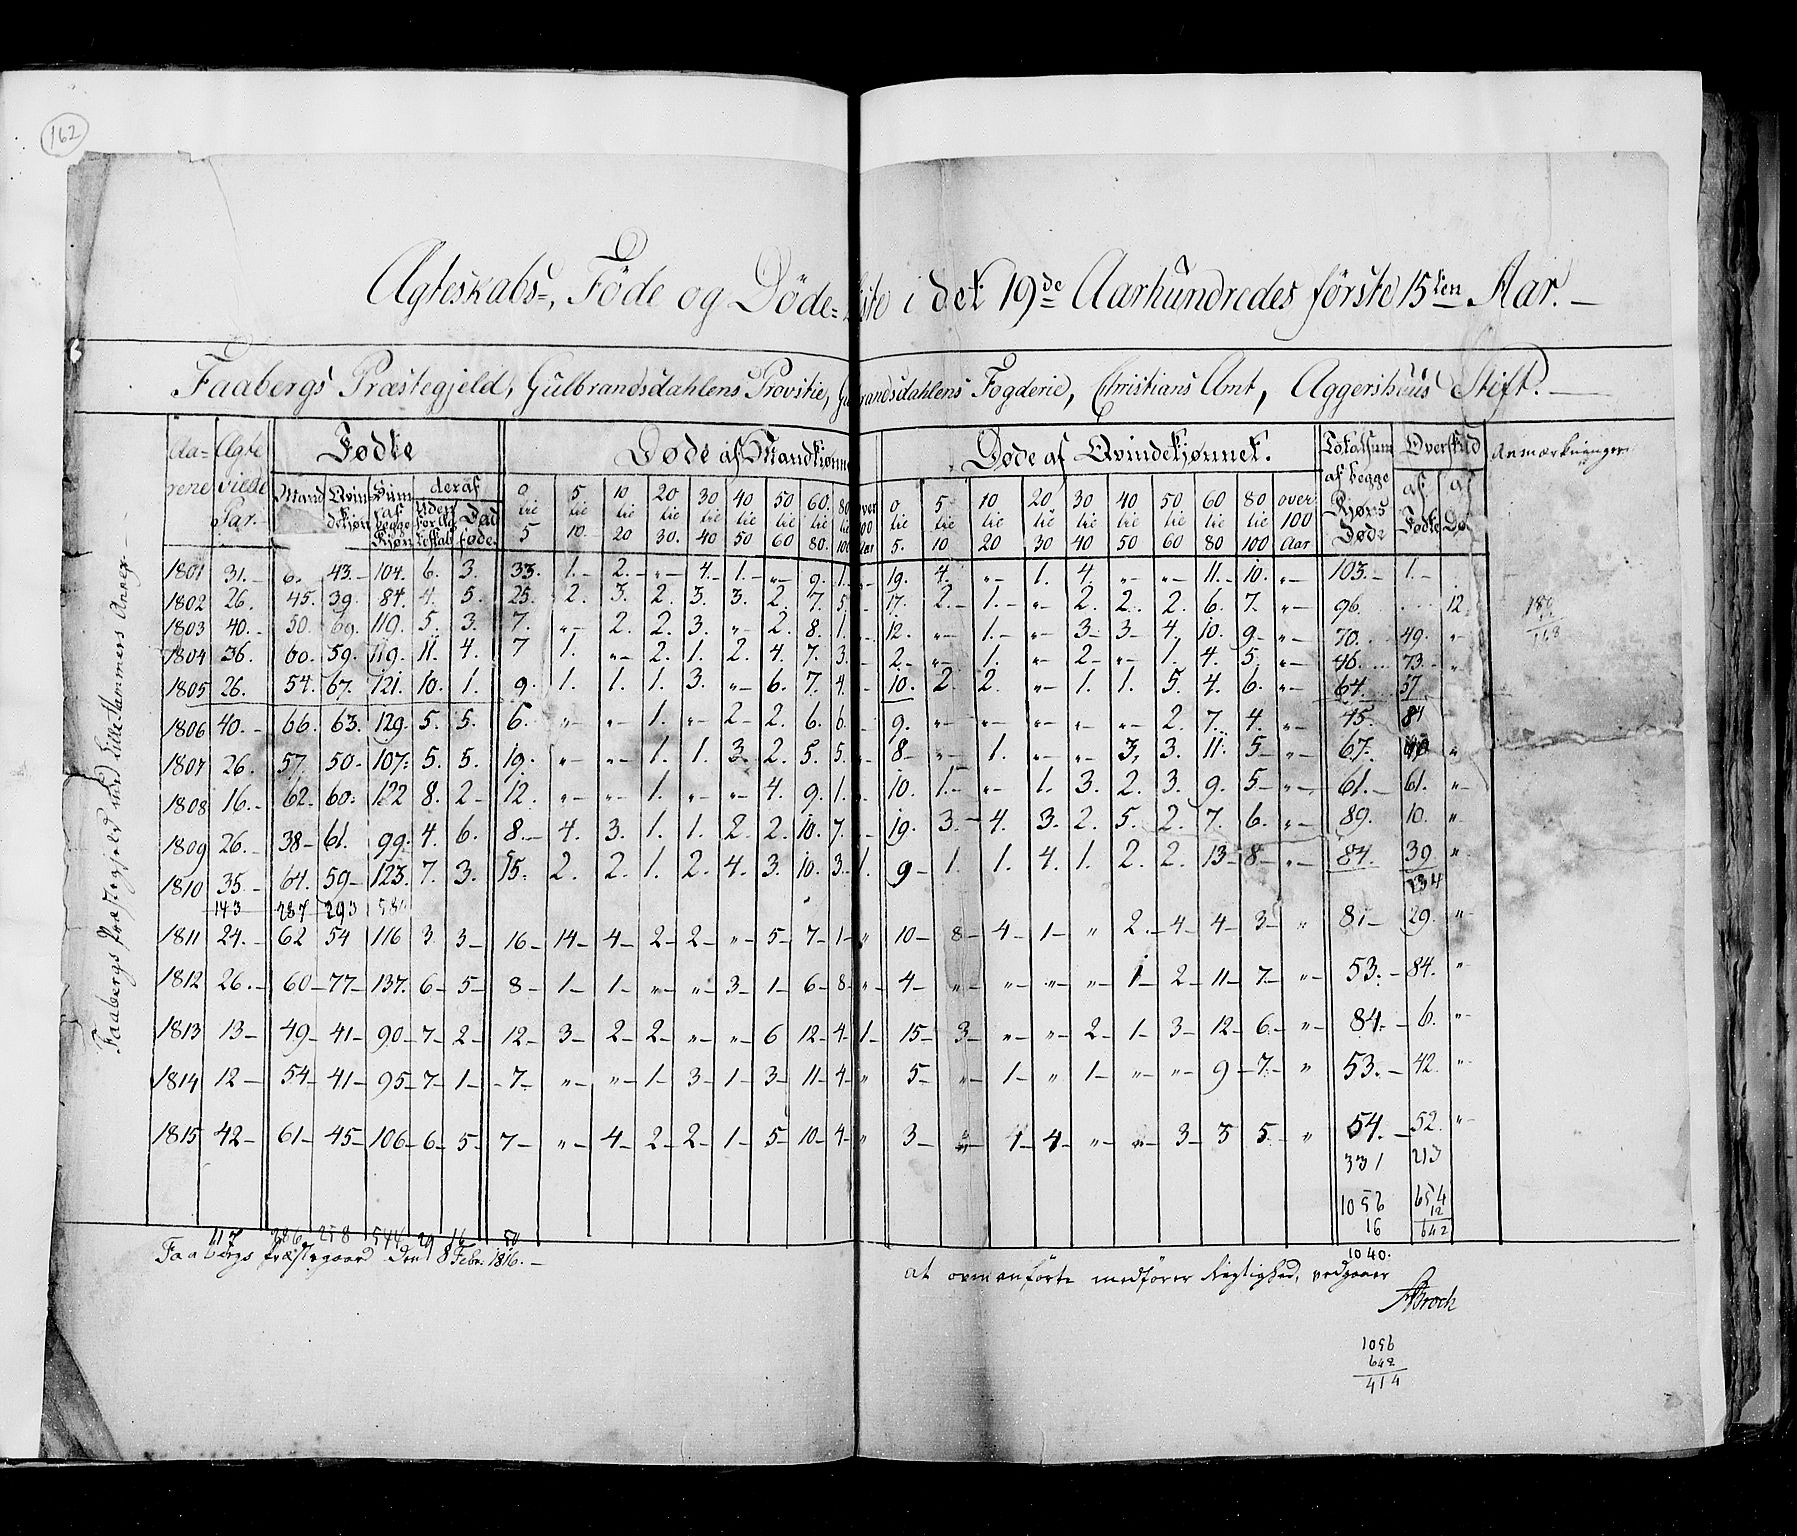 162
Ægteskabs-, Föde og Döde-Liste i det 19de Aarhundredes förste 15ten Aar. —
Faabergs Præstegjeld, Gulbrandsdahlens Provstie, Gulbrandsdahlens Fogderie, Christians Amt, Aggershuus Stift. —
Faabergs Præstegjeld med Lille-Hammers Annex —
Aa-rene | Ægte viede Par. | Födte | Döde af Mandkjönnet | Döde af Qvindekjönnet. | Totalsum af begge Kjöns Döde | Overskud | Anmærkninger
Mand | Qvindekjön | Sum af begge Kjön | deraf | Uden for Ægteskab | Död föde. | 0 tic 5 | 5. tic 10 | 10 tic 20 | 20 tic 30. | 30 tic 40 | 40 tic 50 | 50 tic 60 | 60. tic 80. | 80 tic 100 | over 100 Aar | 0. tic 5. | 5 tic 10 | 10 tic 20 | 20 tic 30 | 30 tic 40 | 40 tic 50 | 50 tic 60 | 60 tic 80 | 80 tic 100 | over 100 Aar | af Födte | af Dö
1801 31. 6. 43. 104. 6. 3. 33. 1. 2. " 4. 1. " 9. 1. " 19. 4. " 1. 4. " " 11. 10. " 103. 1.
1802 26. 45. 39. 84. 4. 5. 25. 2. 3. 2. 3. 3. 2. 7. 5. 17. 2. 1. " 2. 2. 2. 6. 7. " 96. 12
1803 40. 50. 69. 119. 5. 3. 7. " 2. 2. 3. " 2. 8. 1. 12. " 1. " 3 3 4. 10. 9 " 70. 49. "
1804 36. 60. 59. 119. 11. 4. 7 1. " 2. 1. 2. 4. 7. 3. 2. " 1. " 2 " 1. 4. 5. " 46. 73. "
1805 26. 54. 67. 121. 10. 1. 9. 1. 1. 1. 3. " 6. 7. 4. 10. 2. 2. " 1. 1. 5. 4. 6. " 64. 57
1806 40. 66. 63. 129. 5. 5. 6. " " 1. " 2 2. 6. 6. 9. " " " " " 2. 7. 4. " 45. 84
1807 26. 57. 50. 107. 5. 5. 19. " " 1. 1. 3 2. 5. 5. " 8 " 1. " " 3. 3. 11. 5 " 67. 40 "
1808 16. 62. 60. 122 8. 2 12. " " 1. " " 4. 9. 1. 10. 1. " 1. 3. 2. 3. 9. 5 " 61. 61. "
1809 26. 38 61. 99. 4. 6. 8. 4. 3. 1. 1. 2. 2. 10. 7. 19. 3. 4. 3. 2. 5. 2. 7. 6. " 89. 10. "
1810 35. 64. 59 123. 7. 3. 15. 2. 2. 1. 2. 4. 3. 10. 3. 1. 9 1. 1. 4. 1. 2. 2. 13 8 " 84. 39 "
143 287 293 234
1811 24. 62 54 116 3. 3 16 14 4 2 2 " 5 7 1 " 10 8 4 1 " 2. 4 4 3 " 81 29. "
1812 26. 60 77 137. 6 5 8 1 1 " " 3 1 6 8 " 4 " " " " 1 2 11 7. " 53. 84. "
1813 13 49 41 90 7 2 12 3 2 2 " " 6 12 4 1 15 3 " " 2 1 3 12 6. " 84. 6. "
1814 12 54 41 95 7 1 7 " " 1 3 1 3 11 4 " 5 " 1 " 1 " " 9 7. " 53. 42. "
1815 42 61 45 106 6 5 7 " 4 2 2 1 5 10 4 " 3 " 1 4 " " 3 3 5 " 54. 52. "
331 213
1056 654
16 12
642
117 286 258 544 29 16 50
1040.
Faabergs Præstegaard den 8 Febr. 1816. —
at ovenanförte medförer Rigtighed, vedgaaer
Broch
1056
642
414